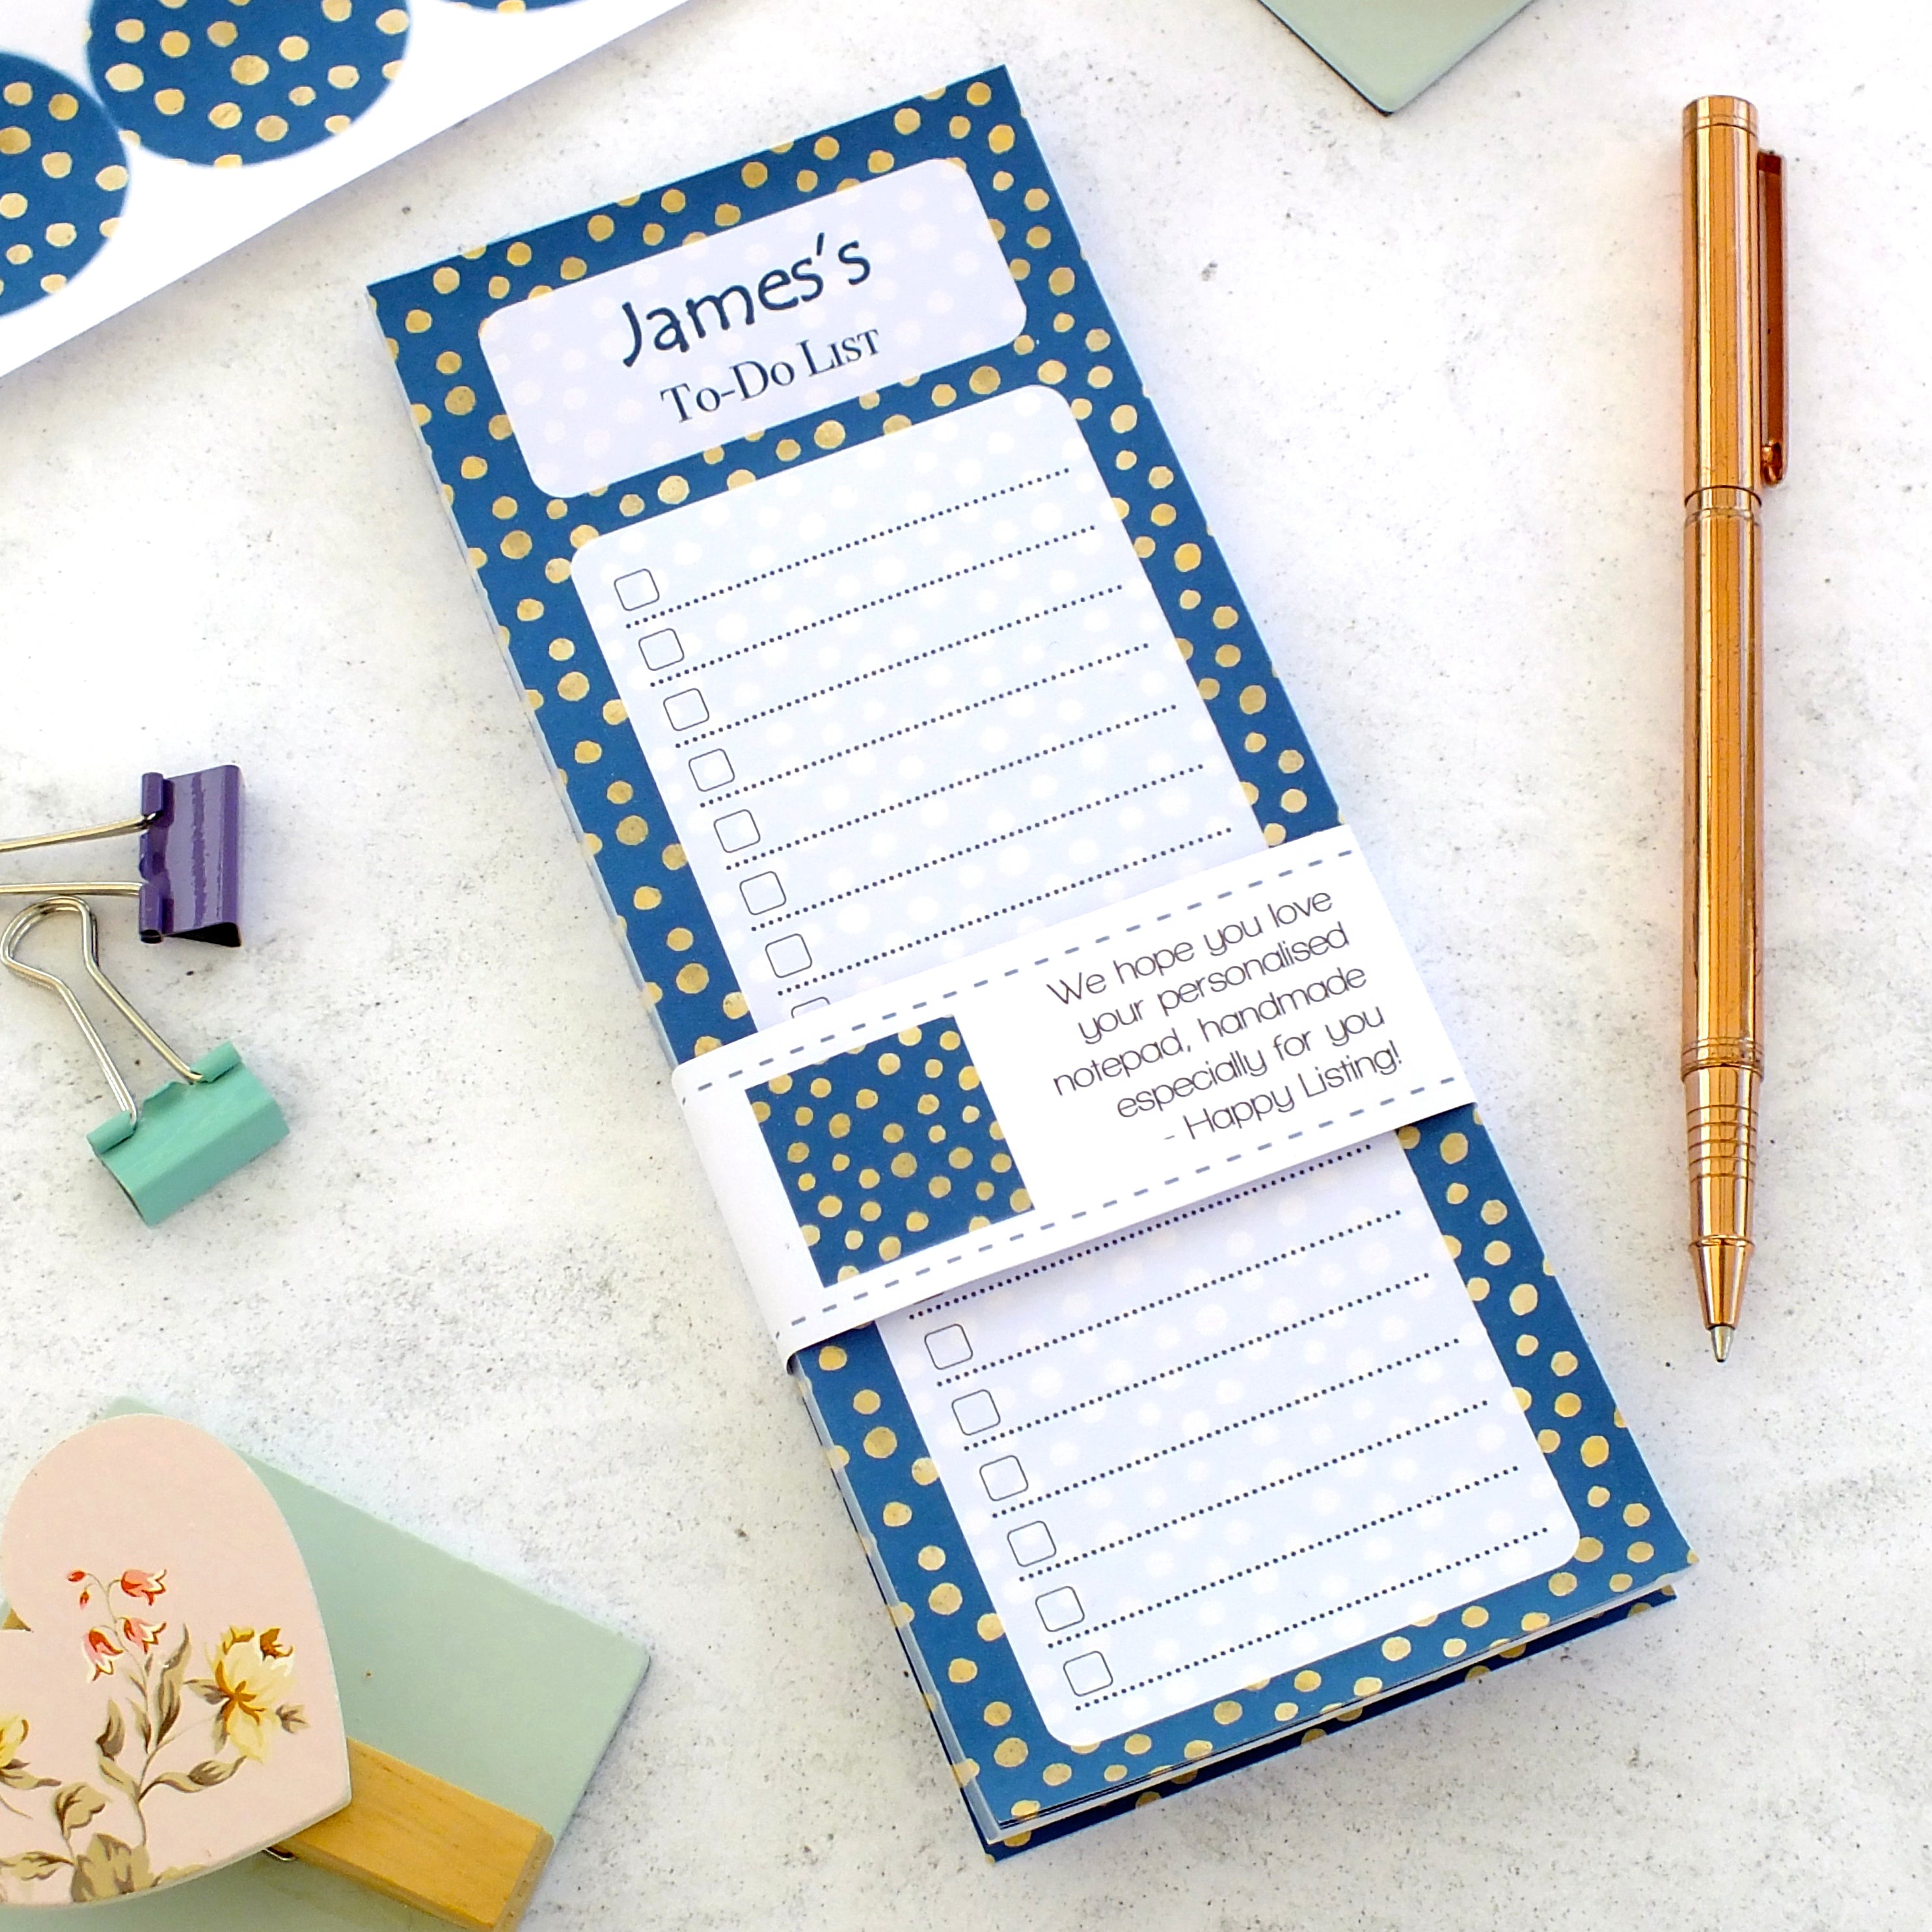 James's
To-Do List
We hope you love
your personalised
notepad, handmade
especially for you
- Happy Listing!